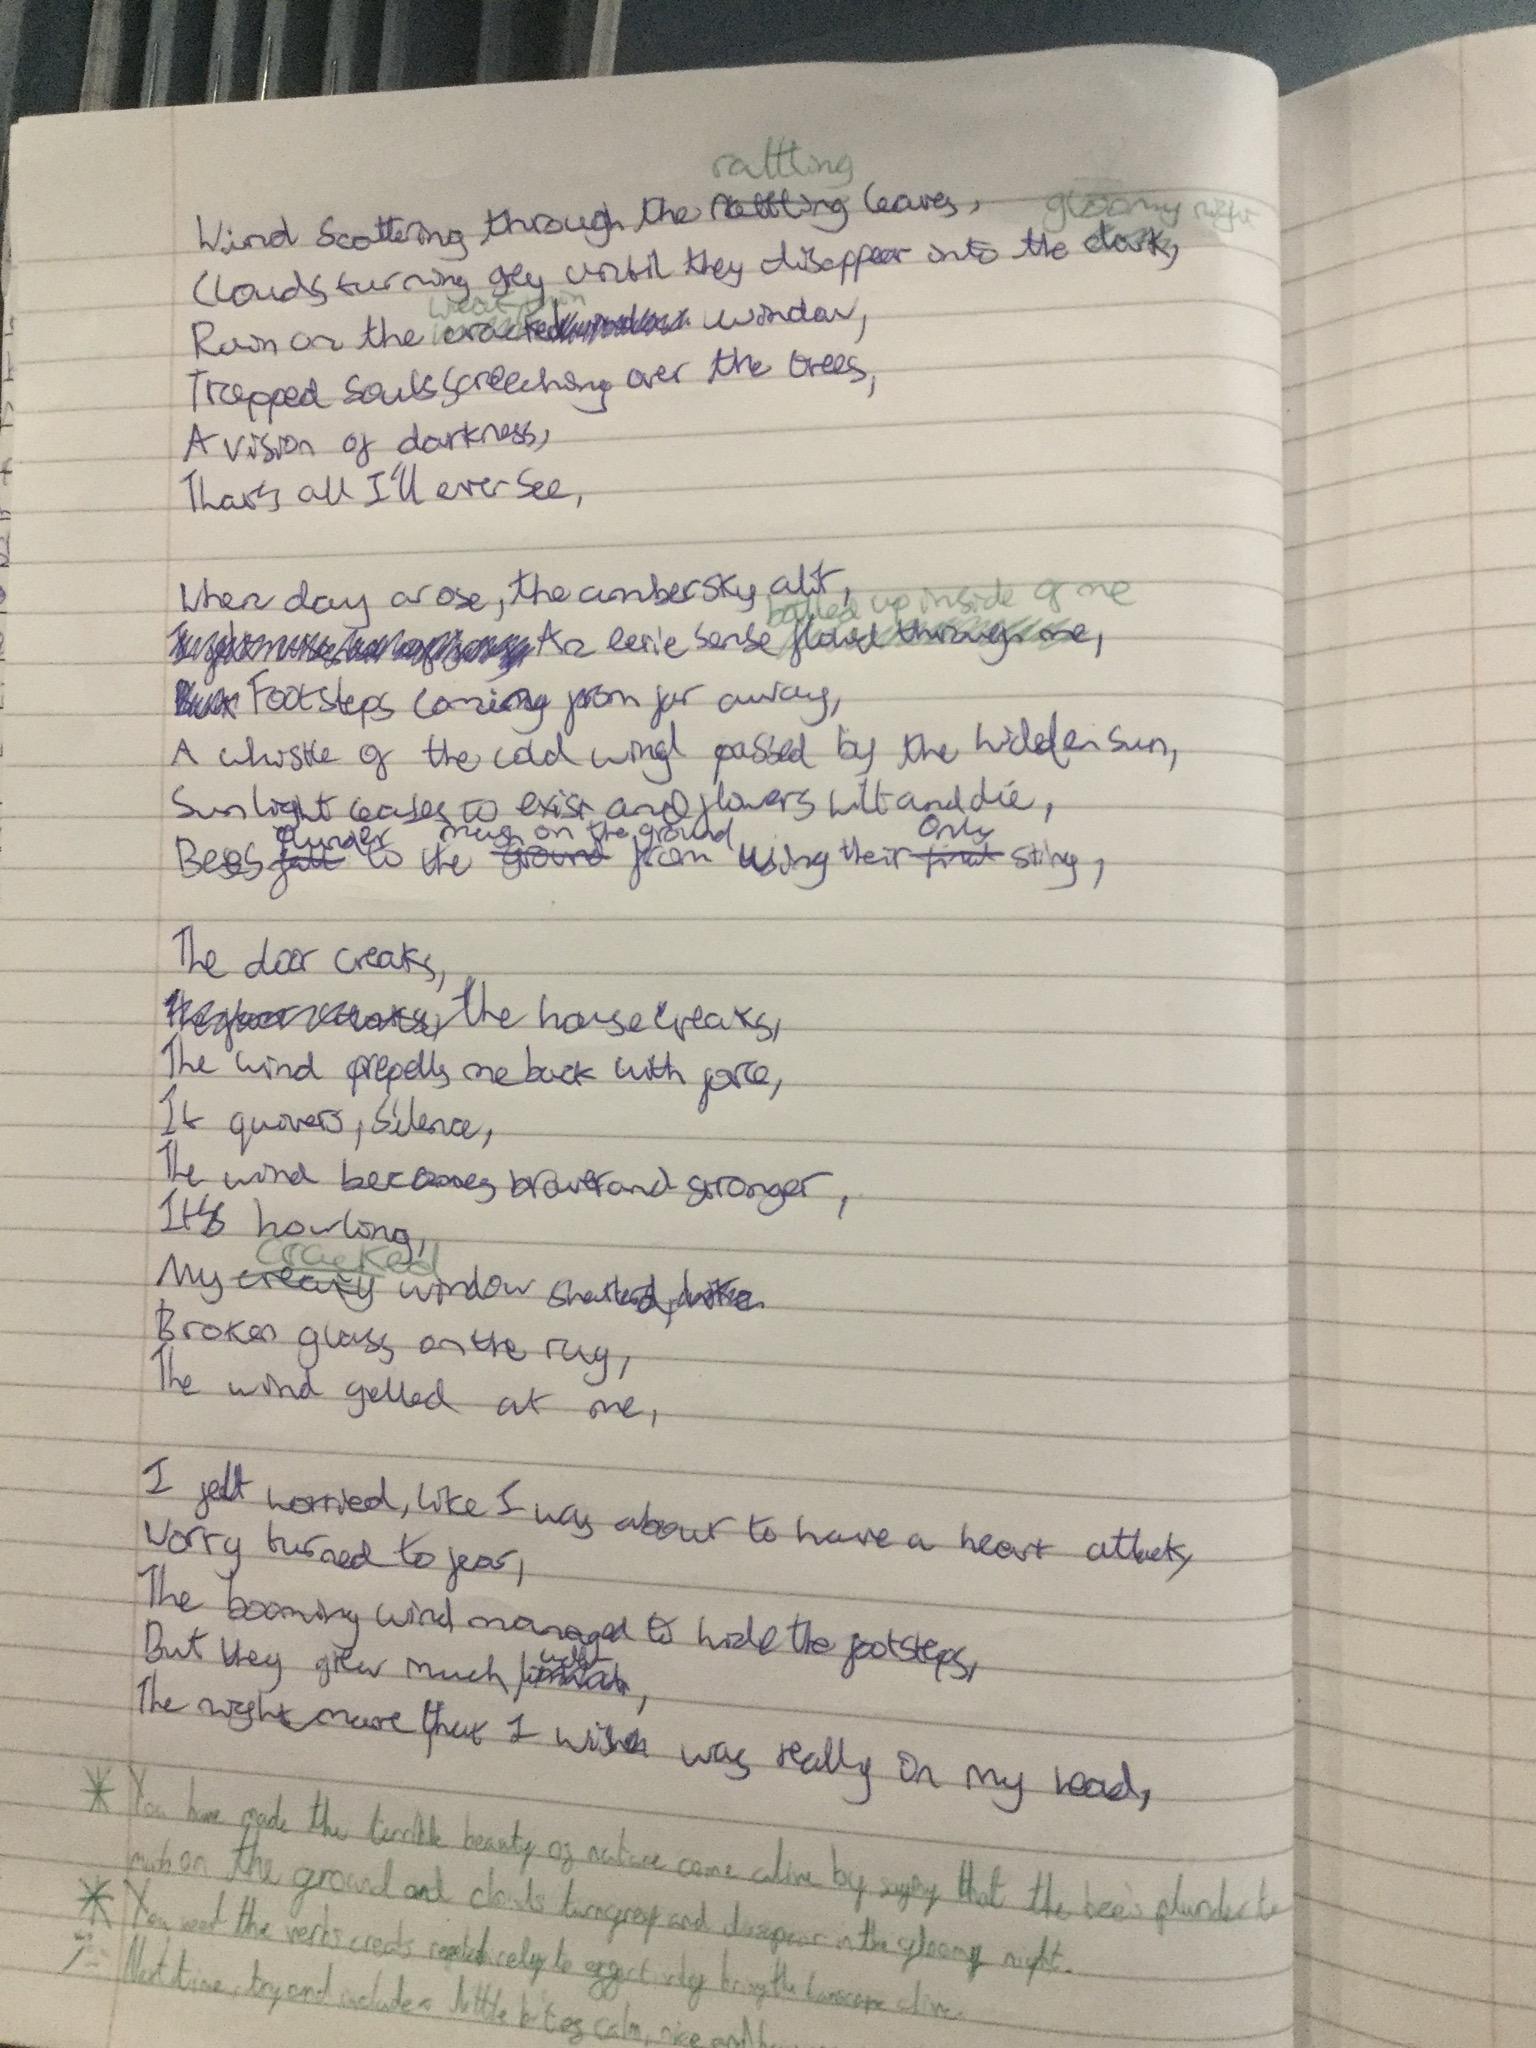 rattling
Wind Scattering through the rattling leaves,
gloomy night
Clouds turning grey until they disappear into the dark,
weak thin
Rain on the cracked window,
Trapped Souls Screeching over the trees,
A vision of darkness,
That's all I'll ever See,
When day arose, the amber sky alit,
balled up inside of me
An eerie sense flowed through me,
Footsteps coming from far away,
A whistle of the cold wind passed by the hidden sun,
Sunlight ceases to exist and flowers wilt and die,
plunder mush on the ground only
Bees fall to the ground from using their final sting,
The door creaks,
the house creaks,
The wind propells me back with force,
It quivers, Silence,
The wind becomes braver and stronger,
It's howling,
cracked
My creaky window shattered,
Broken glass on the rug,
The wind yelled at me,
I felt worried, like I was about to have a heart attack,
Worry turned to fear,
The booming wind managed to hide the footsteps,
But they grew much
The nightmare that I wish was really in my head,
You have made the terrible beauty of nature come alive by saying that the bee's plunder to
mush on the ground and clouds turn grey and disapear in the gloomy night.
You used the verbs creaks repetitively to effectively bring the landscape alive.
Next time, try and include a little bit of calm, nice and